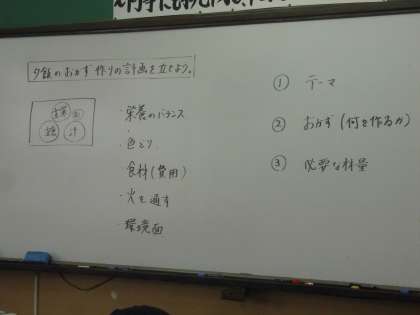 夕飯のおかず作りの計画を立てよう。
・栄養のバランス
・色どり
食材(費用)
・火を通す
・環境面
① テーマ
② おかず(何を作るか)
③ 必要な材量